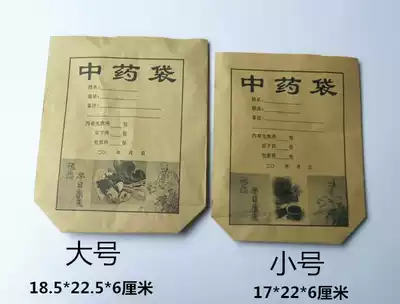 中药袋
姓名:
煎法:
备注:
内有先煎药 包
后下药 包
包煎药 包
二〇 年 月 日
中药袋
姓名:
煎法:
备注:
内有先煎药 包
后下药 包
包煎药 包
二〇 年 月 日
大号
小号
18.5*22.5*6厘米
17*22*6厘米